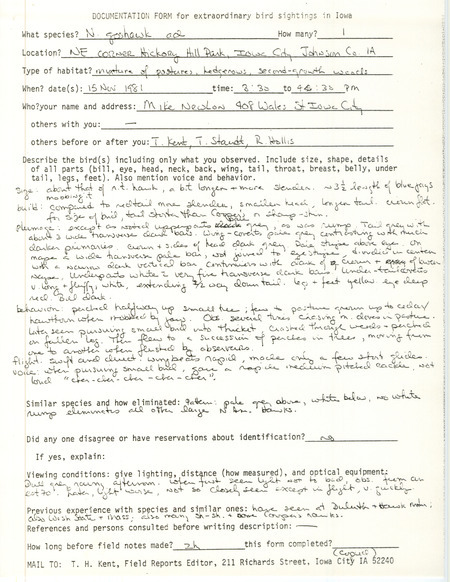 DOCUMENTATION FORM for extraordinary bird sightings in Iowa
What species? N. goshawk ad How many? 1
Location? NE CORNER Hickory Hill Park, Iowa City Johnson Co IA
Type of habitat? mixture of pastures, hedgerows, second-growth woods
When? date(s): 15 Nov 1981 time: 3:30 to 4:30 pm
Who? your name and address: Mike Newlon 408 Wales St Iowa City
others with you: —
others before or after you: T. Kent, T. Staudt, R Hollis
Describe the bird(s) including only what you observed. Include size, shape, details
of all parts (bill, eye, head, neck, back, wing, tail, throat, breast, belly, under
tail, legs, feet). Also mention voice and behavior.
Size: about that of r.t. hawk, a bit longer + more slender. ~3½ length of bluejays
mobbing it
build: compared to redtail more slender, smaller head, longer tail.
for size of bird, tail shorter than Cooper's or sharp-shin.
plumage: except as noted upperparts grey, as was rump. Tail grey with
about 3 wide transverse dark bars. Wing-coverts pale grey, contrasting with much
darker primaries. Crown + sides of head dark grey. Pale stripe above eye. On
nape a wide transverse pale bar not joined to eye stripes divided in center
with a narrow dark vertical bar continuous with dark of crown
nape. Underparts white w very fine transverse dark bars. Under-tail coverts
v. long + fluffy, white, extending ½ way down tail. legs + feet yellow eye deep
red. Bill dark.
behavior: perched halfway up small tree; flew to pasture up to cedar/
hawthorn when mobbed by jays. Obs. several times chasing m. doves in pasture.
Later seen pursuing small bird into thicket, crashed through weeds + perched
on fallen log. Then flew to a succession of perches in trees, moving from
one to another when flushed by observers.
flight: swift and direct: wingbeats rapid, made only a few short glides.
voice: when pursuing small bird, gave a rapid medium pitched cackle, not
loud "cher-cher-cher-cher-cher".
Similar species and how eliminated: Pattern: pale grey above, white below, no white
rump eliminates all other large N. Am. hawks.
Did any one disagree or have reservations about identification? no
If yes, explain:
Viewing conditions: give lighting, distance (how measured), and optical equipment:
Dull grey rainy afternoon. When first seen light not to bad, obs. from an
est 70'. Later, light worse, not so closely seen except in flight, v quickly
Previous experience with species and similar ones: have seen at Duluth + hawk mtn;
also Wisc State + Mass; also many sh-sh. + some Coopers hawks.
References and persons consulted before writing description: —
How long before field notes made? 2h this form completed?
MAIL TO: T. H. Kent, Field Reports Editor, 211 Richards Street, Iowa City IA 52240